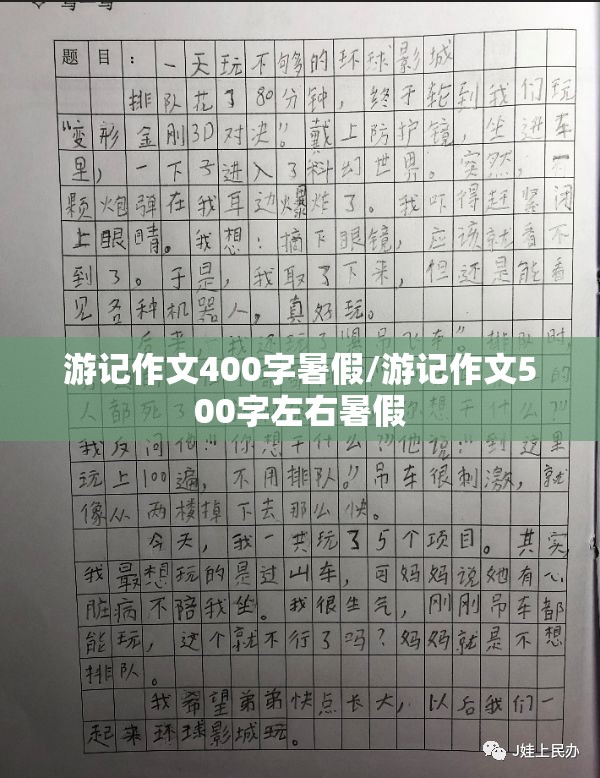 写一写
题目：一天玩不够的环球影城
排队花了80分钟，终于轮到我们玩
“变形金刚3D对决”。戴上防护镜，坐进车
里，一下子进入了科幻世界。突然，一
颗炮弹在我耳边爆炸了。我吓得赶紧闭
上眼睛。我想：摘下眼镜，应该就看不
到了。于是，我取了下来，但还是能看
见各种机器人，真好玩。
后来，我还玩了 吊飞车”。排队时，
的
游记作文400字暑假/游记作文5
00字左右暑假
人都死了 想干什么？”
我反问他：“你想干什么？”他说：“到这里
玩上100遍，不用排队。”吊车很刺激，就
像从两楼掉下去那么快。
今天，我一共玩了5个项目。其实，
我最想玩的是过山车，可妈妈说她有心
脏病不陪我坐。我很生气，刚刚吊车都
能玩，这个就不行了吗？妈妈就是不想
排队。
我希望弟弟快点长大，以后我们一
起来环球影城玩。
J娃上民办